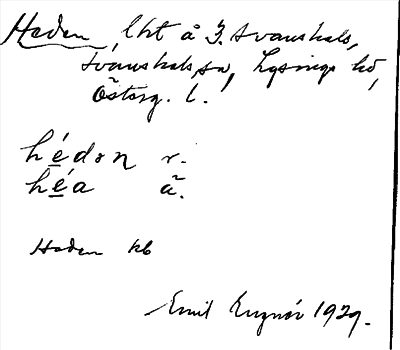 Heden, lht å I. Svanshals,
Svanshals sn, Lysings hd,
Österg. l.
hédon r.
héa ä.
Heden kb
Emil 1929.